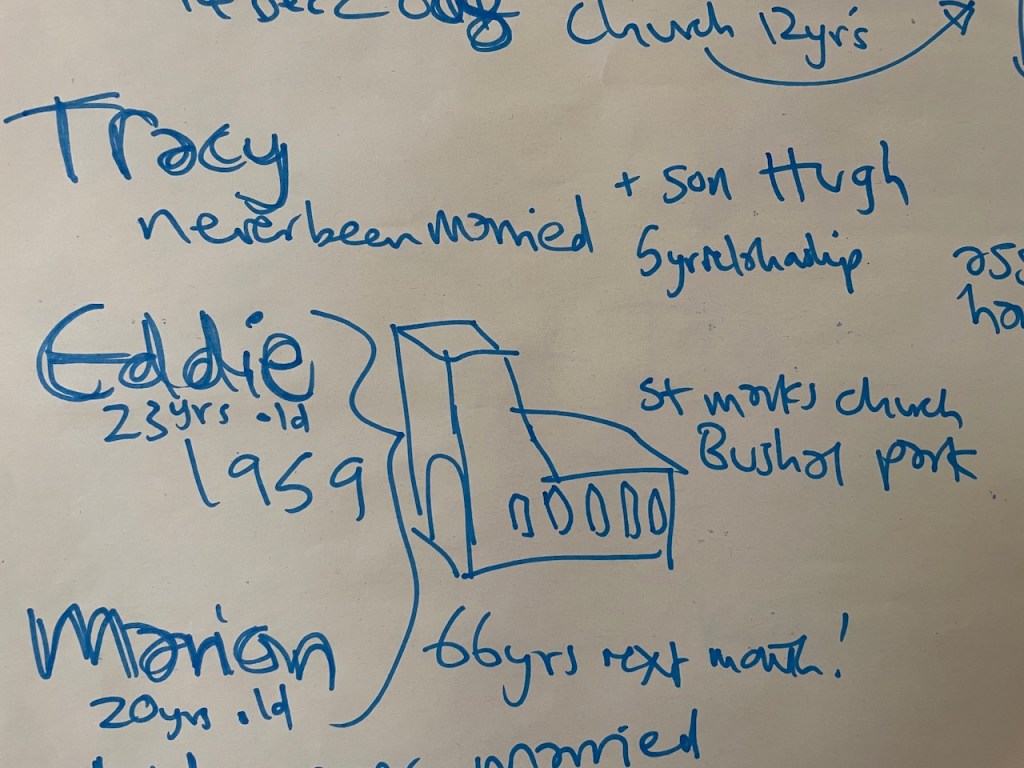 church 12yr's
Tracy
never been married
+ son Hugh
Eddie
23yrs old
1959
St marks church
park
Marion
20yrs old
66yrs next month!
married